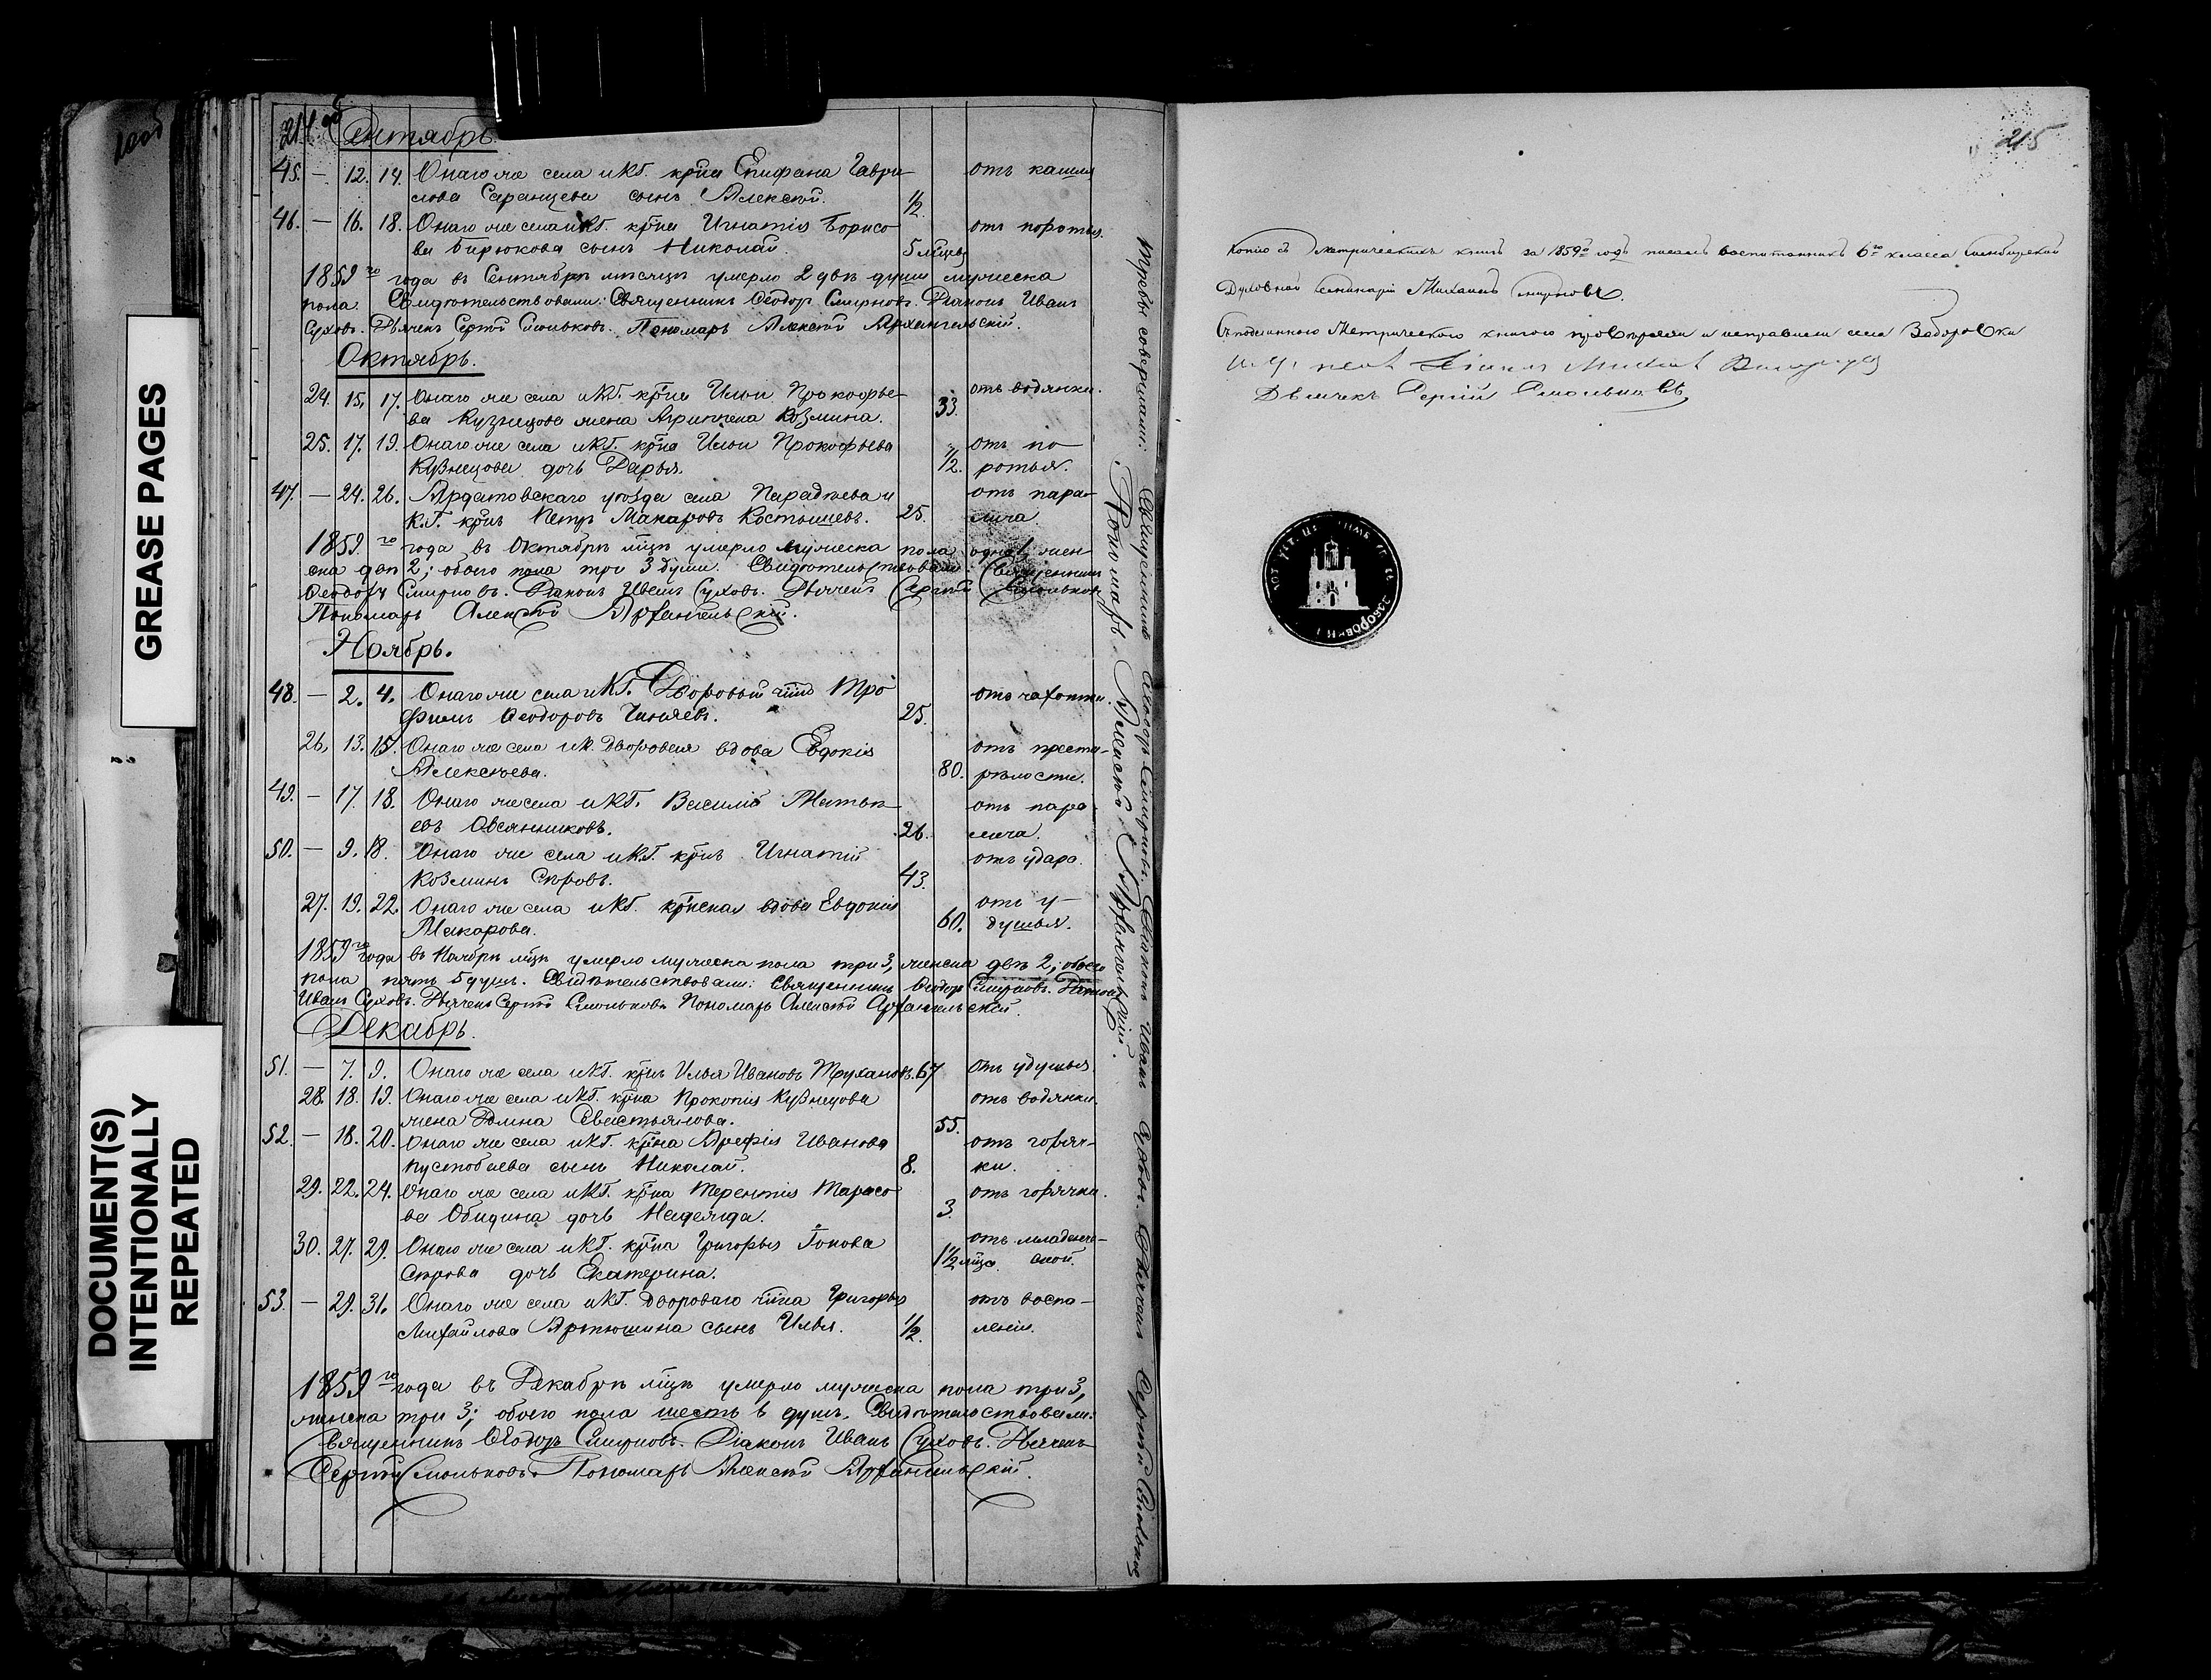 GREASE PAGES
DOCUMENT(S)
INTENTIONALLY
REPEATED
214 об
Сентябрь.
45. — 12. 14. Онаго же села и К.Г. кр̃на Епифана Гаври-
лова Саранцева сынъ Алексѣй. 1/2. отъ кашля
46. — 16. 18. Онаго же села и К.Г. кр̃на Игнатія Борисо-
ва Бирюкова сынъ Николай. 5 мсцевъ отъ поротья.
1859го года въ Сентябрѣ мѣсяцѣ умерло 2 двѣ души мужеска
пола. Свидѣтельствовали: Священникъ Ѳеодоръ Смирновъ. Діаконъ Иванъ
Суховъ. Дьячекъ Сергѣй Смольковъ. Пономарь Алексѣй Архангельскій.
Октябрь.
24. 15. 17. Онаго же села и К.Г. кр̃на Ильи Прокофье-
ва Кузнецова жена Агриппена Козмина. 33. отъ водянки.
25. 17. 19. Онаго же села и К.Г. кр̃на Ильи Прокофьева
Кузнецова дочь Дарья. 1/2. отъ по-
ротья.
47. — 24. 26. Ардатовскаго уѣзда села Паратѣева и
К.Г. кр̃нъ Петръ Макаровъ Костышевъ. 25. отъ пара-
лича.
1859го года въ Октябрѣ мцѣ умерло мужеска пола одна 1, жен-
ска двѣ 2; обоего пола три 3 души. Свидѣтельствовали: Священникъ
Ѳеодоръ Смирновъ. Діаконъ Иванъ Суховъ. Дьячекъ Сергѣй Смольковъ
Пономарь Алексѣй Архангельскій.
Ноябрь.
48. — 2. 4. Онаго же села и К.Г. Дворовый ч̃къ Тро-
фимъ Ѳеодоровъ 25. отъ чахотки.
26. 13. 15. Онаго же села и К. дворовая вдова Евдокія
Алексѣева. 80. отъ преста-
рѣлости.
49. — 17. 18. Онаго же села и К.Г. Василій Матвѣ-
евъ Овсянниковъ. 26. отъ пара-
лича.
50. — 9. 18. Онаго же села и К.Г. кр̃нъ Игнатій
Козминъ Сѣровъ. 43. отъ удара.
27. 19. 22. Онаго же села и К.Г. кр̃нская вдова Евдокія
Макарова. 60. отъ у-
душья.
1859го года въ Ноябрѣ мцѣ умерло мужеска пола три 3, женска двѣ 2; обоего
пола пять 5 душъ. Свидѣтельствовали: Священникъ Ѳеодоръ Смирновъ. Діаконъ
Иванъ Суховъ. Дьячекъ Сергѣй Смольковъ Пономарь Алексѣй Архангельскій.
Декабрь.
51. — 7. 9. Онаго же села и К.Г. кр̃нъ Илья Ивановъ Трухановъ. 67 отъ удушья
28. 18. 19. Онаго же села и К.Г. кр̃на Прокопія Кузнецова
жена Домна Севастьянова. 55. отъ водянки.
52. — 18. 20. Онаго же села и К.Г. кр̃на Арефія Иванова
Пустобаева сынъ Николай. 8. отъ горяч-
ки.
29. 22. 24. Онаго же села и К.Г. кр̃на Терентія Тарасо-
ва Обидина дочь Надежда. 3. отъ горячки.
30. 27. 29. Онаго же села и К.Г. кр̃на Григорья
Сѣрова дочь Екатерина. 1 1/2 мца. отъ младенче-
ской.
53. — 29. 31. Онаго же села и К.Г. дворового ч̃ка Григорья
Михайлова Артюшина сынъ Илья. 1/2. отъ воспа-
ленія.
1859го года въ Декабрѣ мцѣ умерло мужеска пола три 3,
женска три 3; обоего пола шесть 6 душъ. Свидѣтельствовали:
Священникъ Ѳеодоръ Смирновъ. Діаконъ Иванъ Суховъ. Дьячекъ
Сергѣй Смольковъ. Пономарь Алексѣй Архангельскій.
Требы совершали: Священникъ Ѳеодоръ Смирновъ. Діаконъ Иванъ Суховъ. Дьячекъ Сергѣй Смольковъ
Пономарь Алексѣй Архангельскій.
215
Копію съ Метрическихъ книгъ за 1859й годъ писалъ воспитанникъ 6го класса Симбирской
Духовной Семинаріи Михаилъ Смирновъ.
Съ подлинною Метрическою книгою провѣряли и исправили села Заборовки
Дьячекъ Сергій Смольковъ